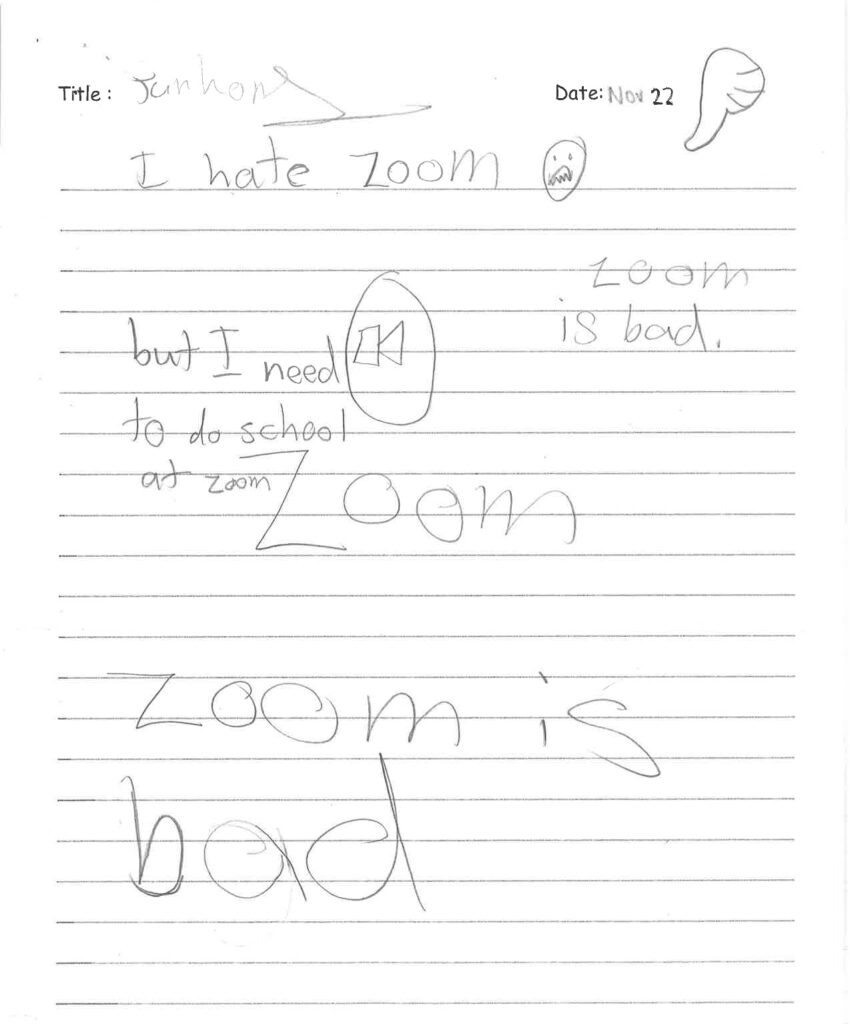 Title: Junhong
Date: Nov 22
I hate zoom
zoom
is bad.
but I need
to do school
at zoom
Zoom
zoom is
bad